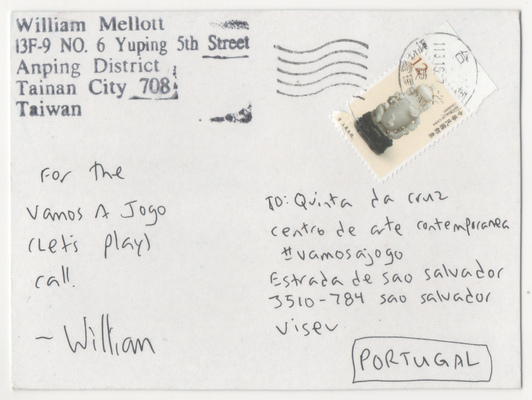 William Mellott
13F-9 NO. 6 Yuping 5th Street
Anping District
Tainan City 708
Taiwan
For the
Vamos A Jogo
(Let's play)
call.
~William
TO: Quinta da cruz
centro de arte contemporanea
#vamosajogo
Estrada de sao salvador
3510-784 sao salvador
viseu
PORTUGAL